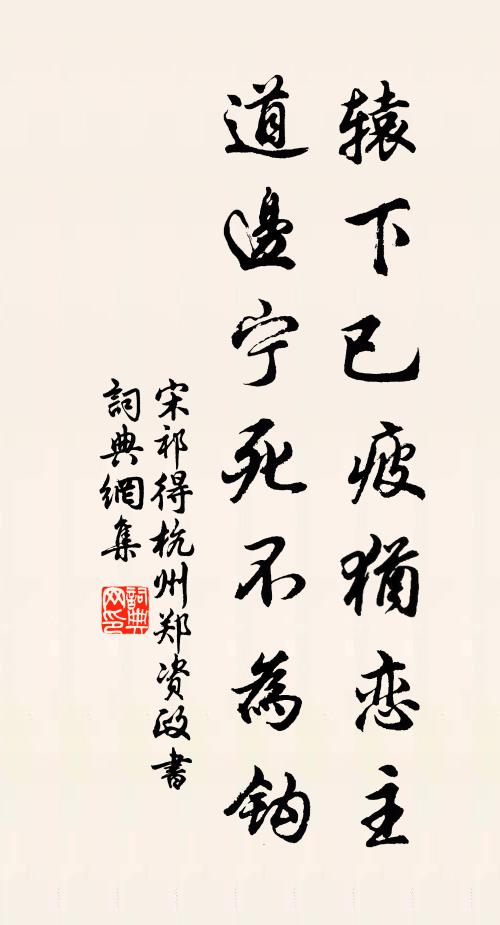 辕下已疲猶恋主
道邊宁死不為鈎
宋祁得杭州郑资政書
詞典網集
詞典
网印